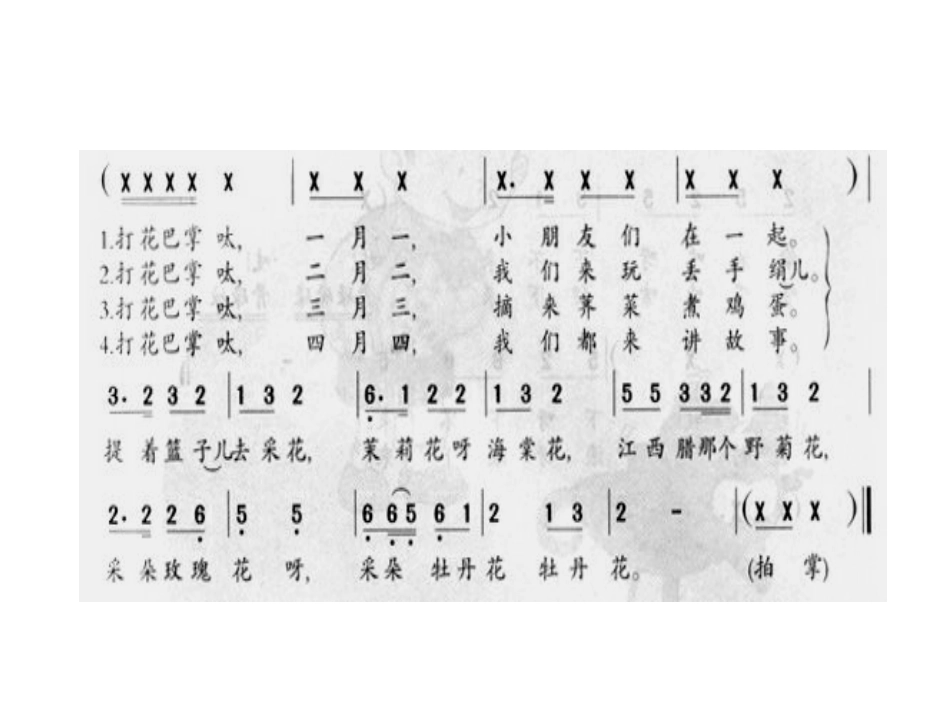 ( X X X X X | X X X | X. X X X | X X X ) |
1.打花巴掌呔, 一月一, 小朋友们在一起。
2.打花巴掌呔, 二月二, 我们来玩丢手绢儿。
3.打花巴掌呔, 三月三, 摘来荠菜煮鸡蛋。
4.打花巴掌呔, 四月四, 我们都来讲故事。
3. 2 3 2 | 1 3 2 | 6. 1 2 2 | 1 3 2 | 5 5 3 3 2 | 1 3 2 |
提着篮子儿去采花, 茉莉花呀海棠花, 江西腊那个野菊花,
2. 2 2 6 | 5 5 | 6 6 5 6 1 | 2 1 3 | 2 - | (X X X )
采朵玫瑰花呀, 采朵牡丹花牡丹花。 (拍掌)